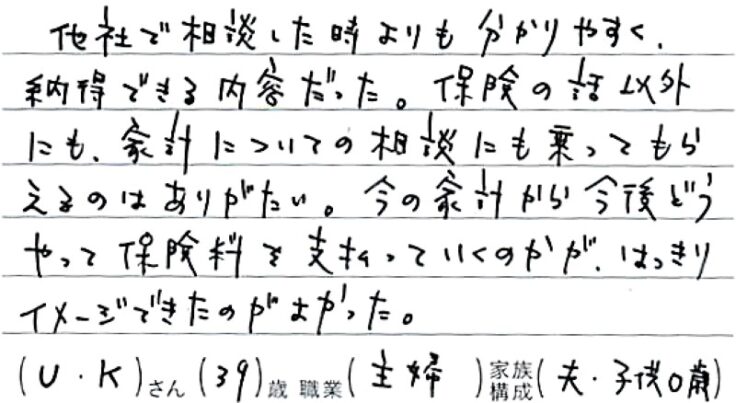 他社で相談した時よりも分かりやすく、
納得できる内容だった。保険の話以外
にも、家計についての相談にも乗ってもら
えるのはありがたい。今の家計から今後どう
やって保険料を支払っていくのかが、はっきり
イメージできたのがよかった。
(U・K)さん(39)歳 職業(主婦)家族構成(夫・子供0歳)